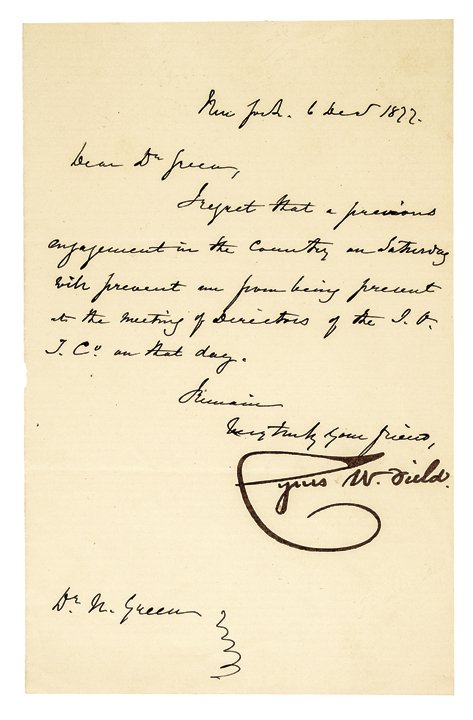 New York. 6 Decr 1877.
Dear Dr Green,
I regret that a previous
engagement in the Country on Saturday
will prevent me from being present
at the meeting of Directors of the I. O.
T. Co. on that day.
I remain
Very truly your friend,
Cyrus W. Field.
Dr N. Green